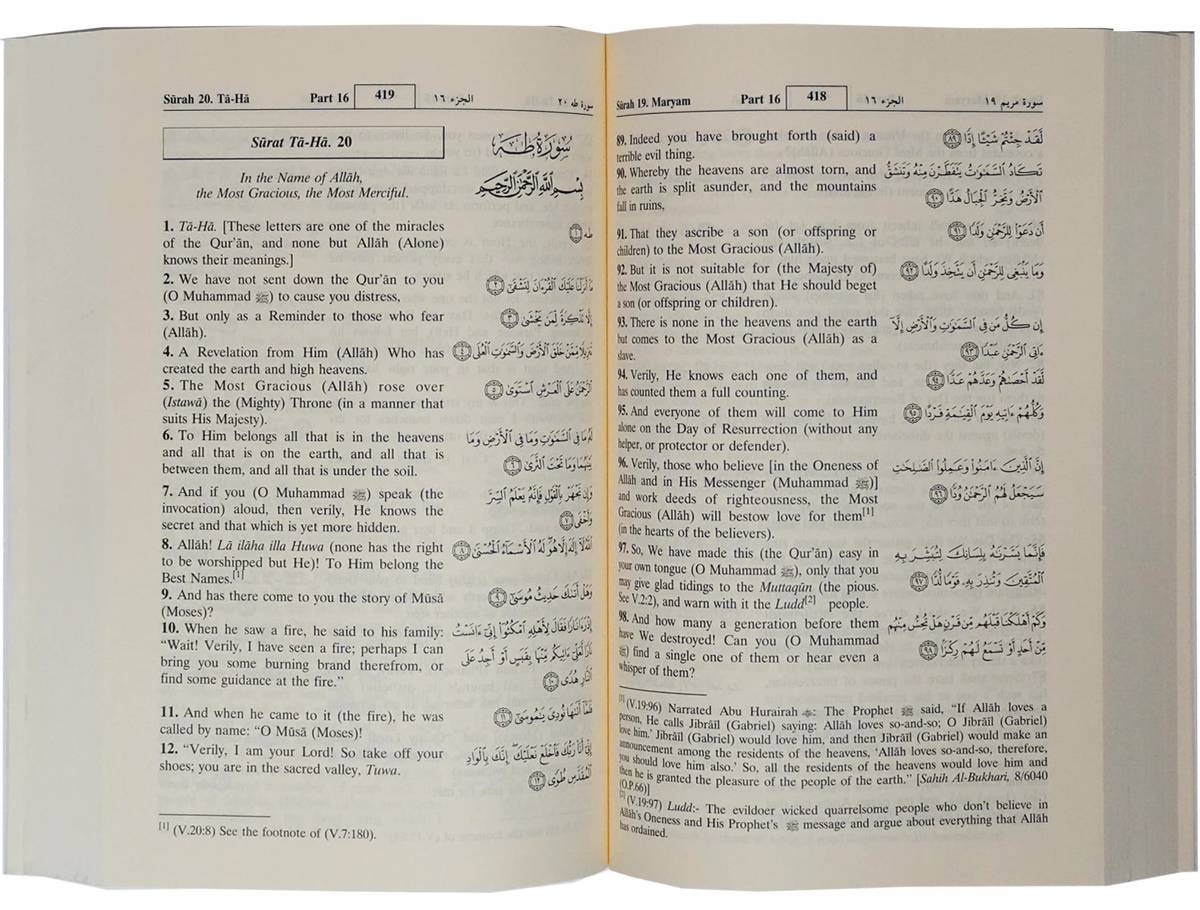 Sūrah 19. Maryam Part 16 418 الجزء ١٦ سورة مريم ١٩
89. Indeed you have brought forth (said) a
terrible evil thing.
90. Whereby the heavens are almost torn, and
the earth is split asunder, and the mountains
fall in ruins,
91. That they ascribe a son (or offspring or
children) to the Most Gracious (Allâh).
92. But it is not suitable for (the Majesty of)
the Most Gracious (Allâh) that He should beget
a son (or offspring or children).
93. There is none in the heavens and the earth
but comes to the Most Gracious (Allâh) as a
slave.
94. Verily, He knows each one of them, and
has counted them a full counting.
95. And everyone of them will come to Him
alone on the Day of Resurrection (without any
helper, or protector or defender).
96. Verily, those who believe [in the Oneness of
Allâh and in His Messenger (Muhammad ﷺ)]
and work deeds of righteousness, the Most
Gracious (Allâh) will bestow love for them[1]
(in the hearts of the believers).
97. So, We have made this (the Qur'ân) easy in
your own tongue (O Muhammad ﷺ), only that you
may give glad tidings to the Muttaqûn (the pious.
See V.2:2), and warn with it the Ludd[2] people.
98. And how many a generation before them
have We destroyed! Can you (O Muhammad
ﷺ) find a single one of them or hear even a
whisper of them?
لَّقَدْ جِئْتُمْ شَيْـًٔا إِدًّا ٨٩
تَكَادُ ٱلسَّمَـٰوَٰتُ يَتَفَطَّرْنَ مِنْهُ وَتَنشَقُّ
ٱلْأَرْضُ وَتَخِرُّ ٱلْجِبَالُ هَدًّا ٩٠
أَن دَعَوْا۟ لِلرَّحْمَـٰنِ وَلَدًا ٩١
وَمَا يَنۢبَغِى لِلرَّحْمَـٰنِ أَن يَتَّخِذَ وَلَدًا ٩٢
إِن كُلُّ مَن فِى ٱلسَّمَـٰوَٰتِ وَٱلْأَرْضِ إِلَّآ
ءَاتِى ٱلرَّحْمَـٰنِ عَبْدًا ٩٣
لَّقَدْ أَحْصَىٰهُمْ وَعَدَّهُمْ عَدًّا ٩٤
وَكُلُّهُمْ ءَاتِيهِ يَوْمَ ٱلْقِيَـٰمَةِ فَرْدًا ٩٥
إِنَّ ٱلَّذِينَ ءَامَنُوا۟ وَعَمِلُوا۟ ٱلصَّـٰلِحَـٰتِ
سَيَجْعَلُ لَهُمُ ٱلرَّحْمَـٰنُ وُدًّا ٩٦
فَإِنَّمَا يَسَّرْنَـٰهُ بِلِسَانِكَ لِتُبَشِّرَ بِهِ
ٱلْمُتَّقِينَ وَتُنذِرَ بِهِۦ قَوْمًا لُّدًّا ٩٧
وَكَمْ أَهْلَكْنَا قَبْلَهُم مِّن قَرْنٍ هَلْ تُحِسُّ مِنْهُم
مِّنْ أَحَدٍ أَوْ تَسْمَعُ لَهُمْ رِكْزًۢا ٩٨
[1] (V.19:96) Narrated Abu Hurairah: The Prophet ﷺ said, "If Allâh loves a
person, He calls Jibrâîl (Gabriel) saying: Allâh loves so-and-so; O Jibrâîl (Gabriel)
love him.' Jibrâîl (Gabriel) would love him, and then Jibrâîl (Gabriel) would make an
announcement among the residents of the heavens, 'Allâh loves so-and-so, therefore,
you should love him also.' So, all the residents of the heavens would love him and
then he is granted the pleasure of the people of the earth." [Sahih Al-Bukhari, 8/6040
(O.P.66)]
[2] (V.19:97) Ludd:- The evildoer wicked quarrelsome people who don't believe in
Allâh's Oneness and His Prophet's ﷺ message and argue about everything that Allâh
has ordained.
Sūrah 20. Tā-Hā Part 16 419 الجزء ١٦ سورة طه ٢٠
Sūrat Tā-Hā. 20
In the Name of Allâh,
the Most Gracious, the Most Merciful.
1. Tâ-Hâ. [These letters are one of the miracles
of the Qur'ân, and none but Allâh (Alone)
knows their meanings.]
2. We have not sent down the Qur'ân to you
(O Muhammad ﷺ) to cause you distress,
3. But only as a Reminder to those who fear
(Allâh).
4. A Revelation from Him (Allâh) Who has
created the earth and high heavens.
5. The Most Gracious (Allâh) rose over
(Istawâ) the (Mighty) Throne (in a manner that
suits His Majesty).
6. To Him belongs all that is in the heavens
and all that is on the earth, and all that is
between them, and all that is under the soil.
7. And if you (O Muhammad ﷺ) speak (the
invocation) aloud, then verily, He knows the
secret and that which is yet more hidden.
8. Allâh! Lâ ilâha illa Huwa (none has the right
to be worshipped but He)! To Him belong the
Best Names.[1]
9. And has there come to you the story of Mûsâ
(Moses)?
10. When he saw a fire, he said to his family:
"Wait! Verily, I have seen a fire; perhaps I can
bring you some burning brand therefrom, or
find some guidance at the fire."
11. And when he came to it (the fire), he was
called by name: "O Mûsâ (Moses)!
12. "Verily, I am your Lord! So take off your
shoes; you are in the sacred valley, Tuwa.
سُورَةُ طه
بِسْمِ ٱللَّهِ ٱلرَّحْمَـٰنِ ٱلرَّحِيمِ
طه ١
مَآ أَنزَلْنَا عَلَيْكَ ٱلْقُرْءَانَ لِتَشْقَىٰٓ ٢
إِلَّا تَذْكِرَةً لِّمَن يَخْشَىٰ ٣
تَنزِيلًا مِّمَّنْ خَلَقَ ٱلْأَرْضَ وَٱلسَّمَـٰوَٰتِ ٱلْعُلَى ٤
ٱلرَّحْمَـٰنُ عَلَى ٱلْعَرْشِ ٱسْتَوَىٰ ٥
لَهُۥ مَا فِى ٱلسَّمَـٰوَٰتِ وَمَا فِى ٱلْأَرْضِ وَمَا
بَيْنَهُمَا وَمَا تَحْتَ ٱلثَّرَىٰ ٦
وَإِن تَجْهَرْ بِٱلْقَوْلِ فَإِنَّهُۥ يَعْلَمُ ٱلسِّرَّ
وَأَخْفَى ٧
ٱللَّهُ لَآ إِلَـٰهَ إِلَّا هُوَ لَهُ ٱلْأَسْمَآءُ ٱلْحُسْنَىٰ ٨
وَهَلْ أَتَىٰكَ حَدِيثُ مُوسَىٰٓ ٩
إِذْ رَءَا نَارًا فَقَالَ لِأَهْلِهِ ٱمْكُثُوٓا۟ إِنِّىٓ ءَانَسْتُ
نَارًا لَّعَلِّىٓ ءَاتِيكُم مِّنْهَا بِقَبَسٍ أَوْ أَجِدُ عَلَى
ٱلنَّارِ هُدًى ١٠
فَلَمَّآ أَتَىٰهَا نُودِىَ يَـٰمُوسَىٰٓ ١١
إِنِّىٓ أَنَا۠ رَبُّكَ فَٱخْلَعْ نَعْلَيْكَ إِنَّكَ بِٱلْوَادِ
ٱلْمُقَدَّسِ طُوًى ١٢
[1] (V.20:8) See the footnote of (V.7:180).